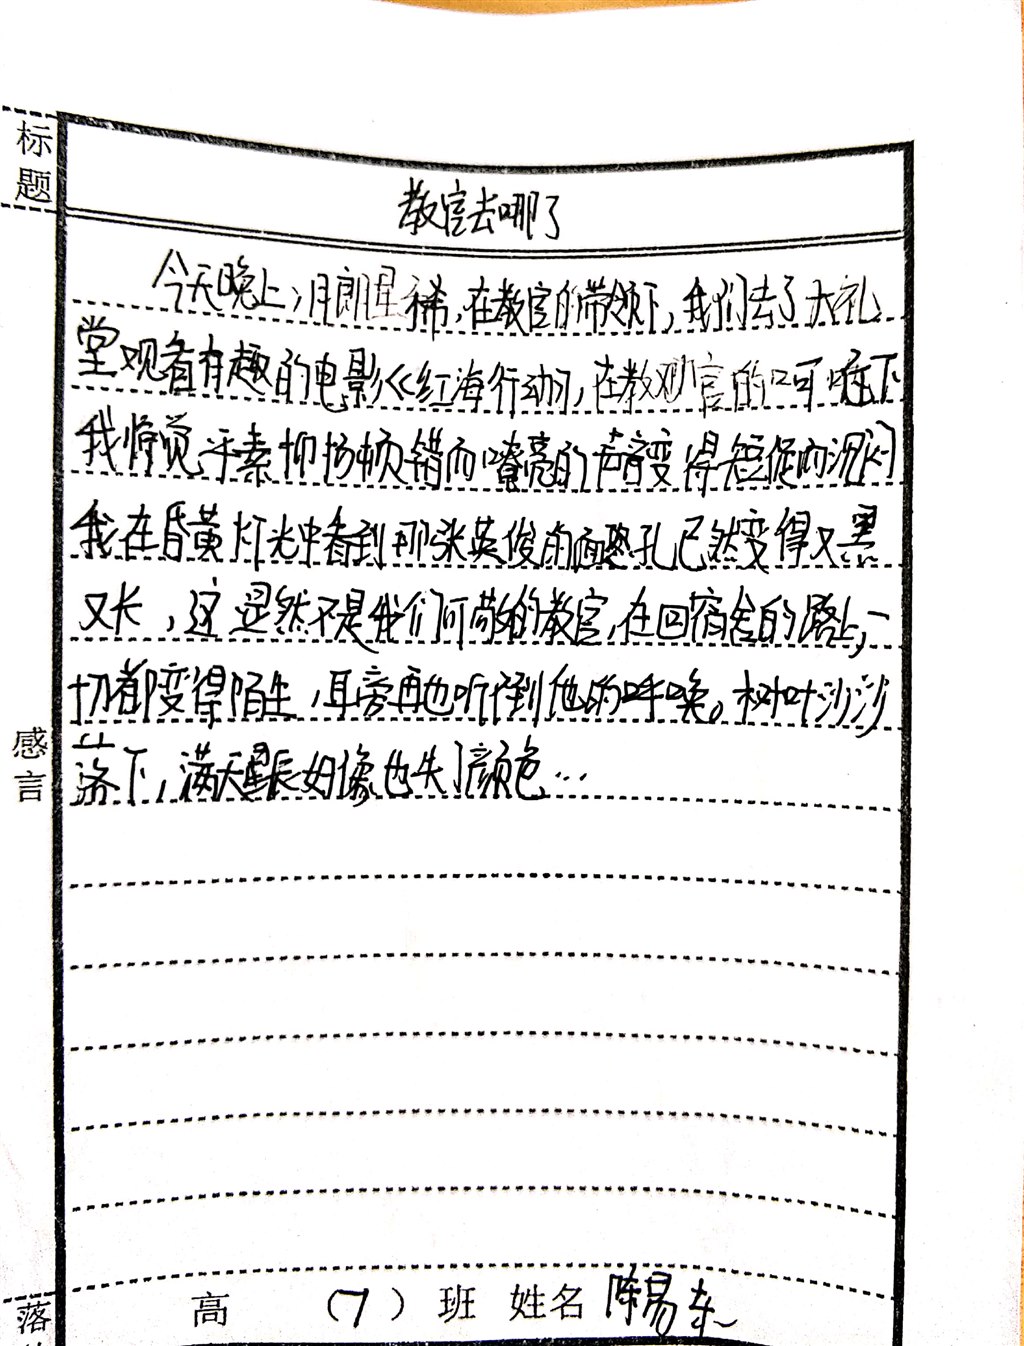 标题
教官去哪了
今天晚上,月朗星稀,在教官的带领下,我们去了大礼
堂观看有趣的电影《红海行动》,在教官的呵嗟下
我惊觉平素抑扬顿错而嘹亮的声音变得短促而沉闷
我在昏黄灯光中看到那张英俊的面孔已然变得又黑
又长,这显然不是我们可敬的教官,在回宿舍的路上,一
切都变得陌生,耳旁再也听不到他的呼唤。树叶沙沙
落下,满天星辰好像也失了颜色…
感言
高 (7) 班 姓名 陈易东
落